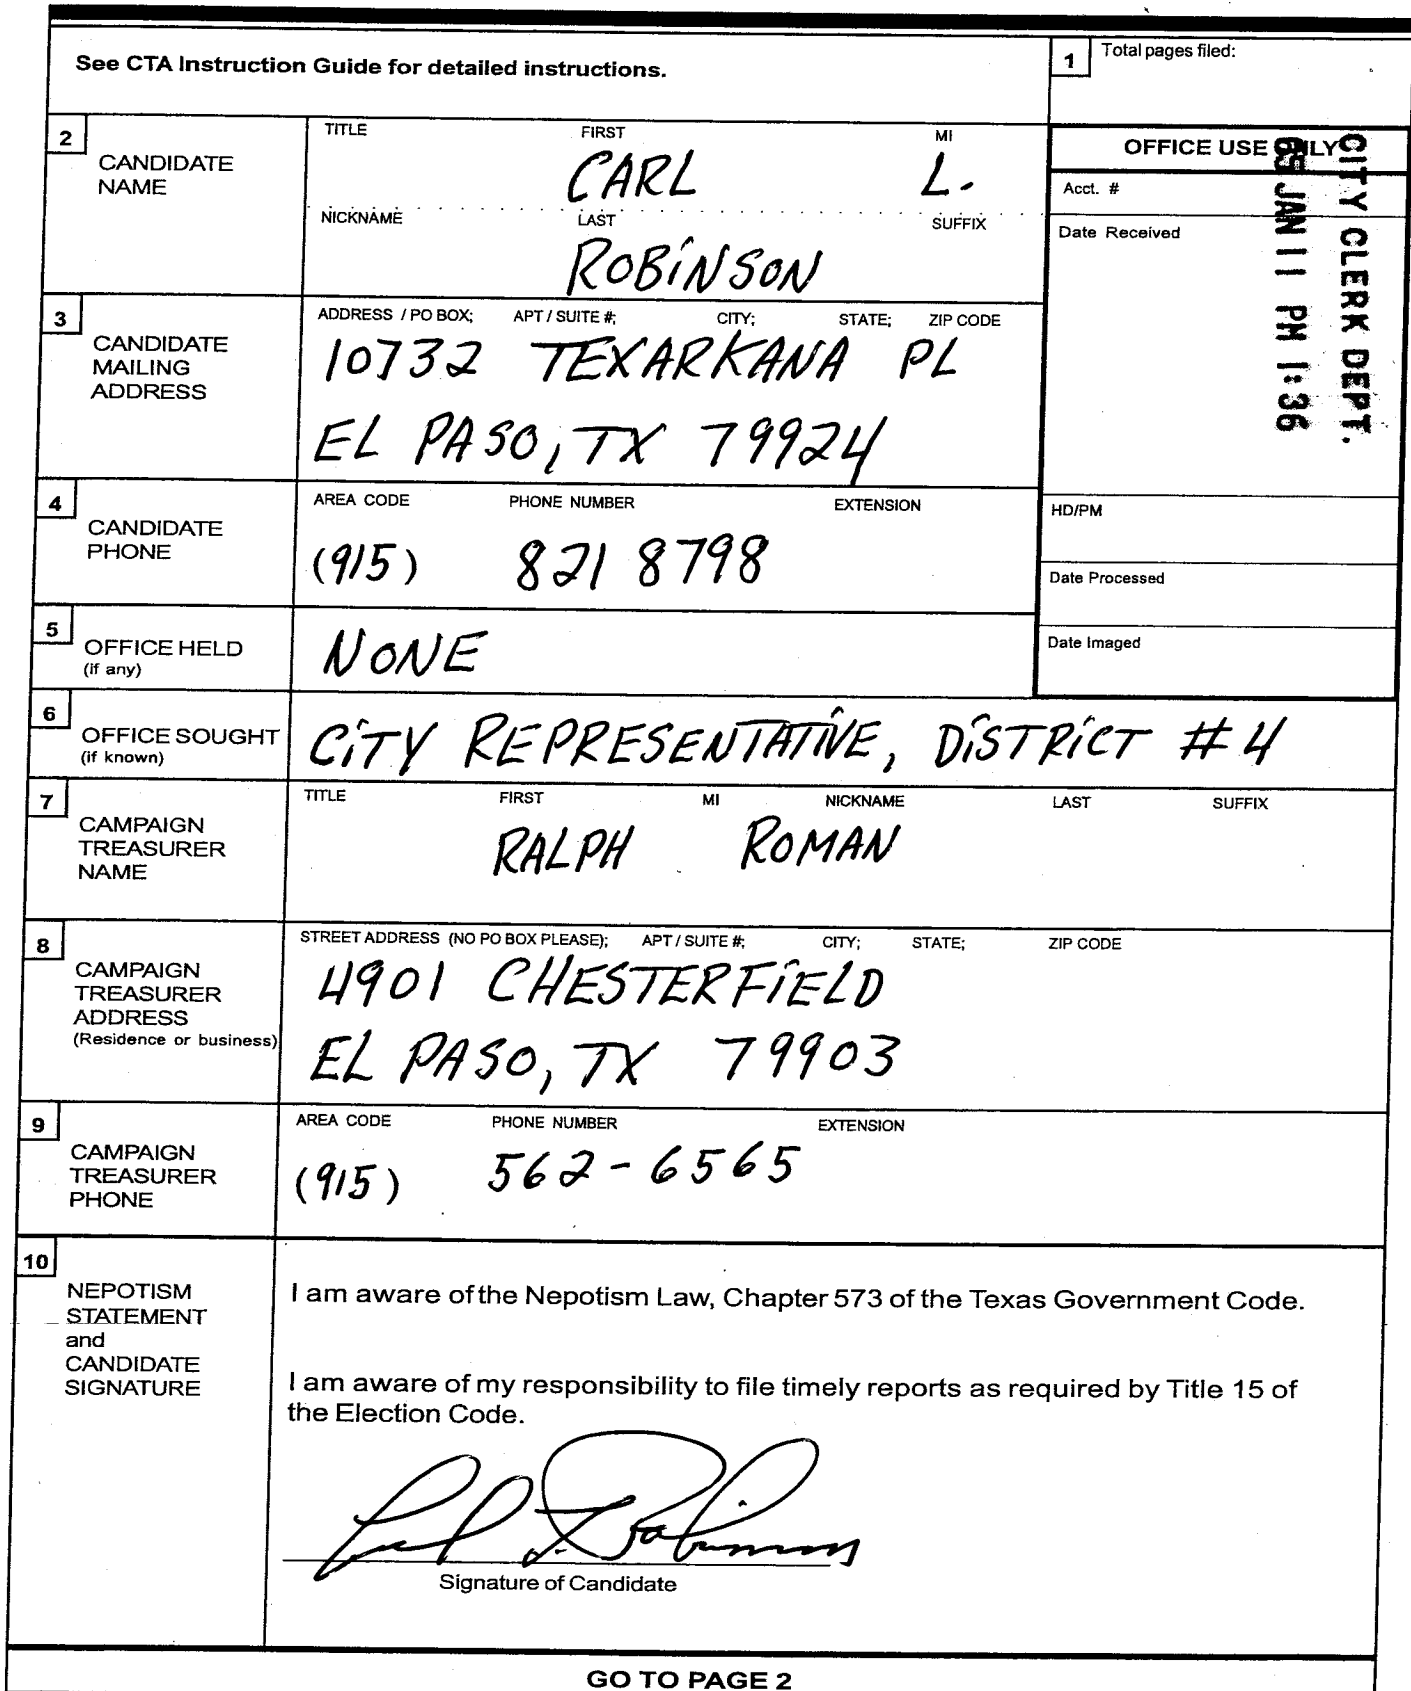 See CTA Instruction Guide for detailed instructions.
1 Total pages filed:
2 CANDIDATE NAME
TITLE FIRST MI
CARL L.
NICKNAME LAST SUFFIX
ROBINSON
OFFICE USE ONLY
Acct. #
Date Received
CITY CLERK DEPT.
05 JAN 11 PM 1:36
HD/PM
Date Processed
Date Imaged
3 CANDIDATE MAILING ADDRESS
ADDRESS / PO BOX; APT / SUITE #; CITY; STATE; ZIP CODE
10732 TEXARKANA PL
EL PASO, TX 79924
4 CANDIDATE PHONE
AREA CODE PHONE NUMBER EXTENSION
(915) 821 8798
5 OFFICE HELD
(if any)
NONE
6 OFFICE SOUGHT
(if known)
CITY REPRESENTATIVE, DISTRICT #4
7 CAMPAIGN TREASURER NAME
TITLE FIRST MI NICKNAME LAST SUFFIX
RALPH ROMAN
8 CAMPAIGN TREASURER ADDRESS
(Residence or business)
STREET ADDRESS (NO PO BOX PLEASE); APT / SUITE #; CITY; STATE; ZIP CODE
4901 CHESTERFIELD
EL PASO, TX 79903
9 CAMPAIGN TREASURER PHONE
AREA CODE PHONE NUMBER EXTENSION
(915) 562-6565
10 NEPOTISM STATEMENT and CANDIDATE SIGNATURE
I am aware of the Nepotism Law, Chapter 573 of the Texas Government Code.
I am aware of my responsibility to file timely reports as required by Title 15 of
the Election Code.
Carl L. Robinson
Signature of Candidate
GO TO PAGE 2